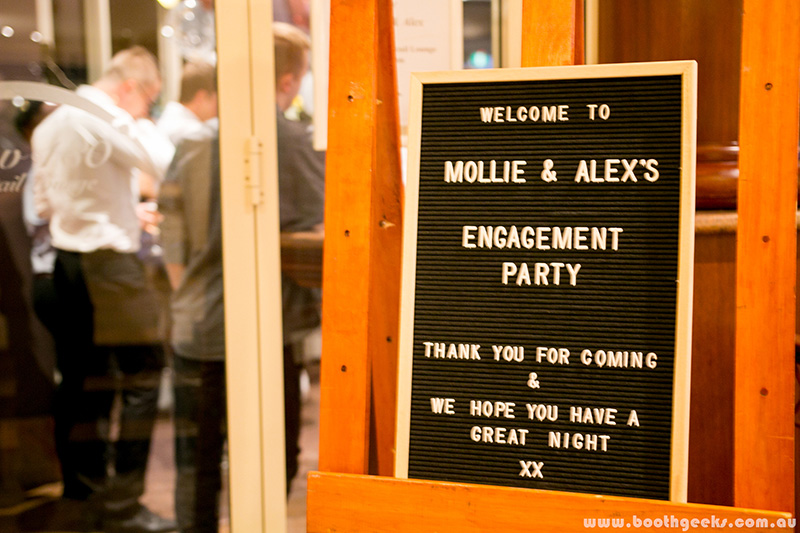 WELCOME TO
MOLLIE & ALEX'S
ENGAGEMENT
PARTY
THANK YOU FOR COMING
&
WE HOPE YOU HAVE A
GREAT NIGHT
XX
www.boothgeeks.com.au